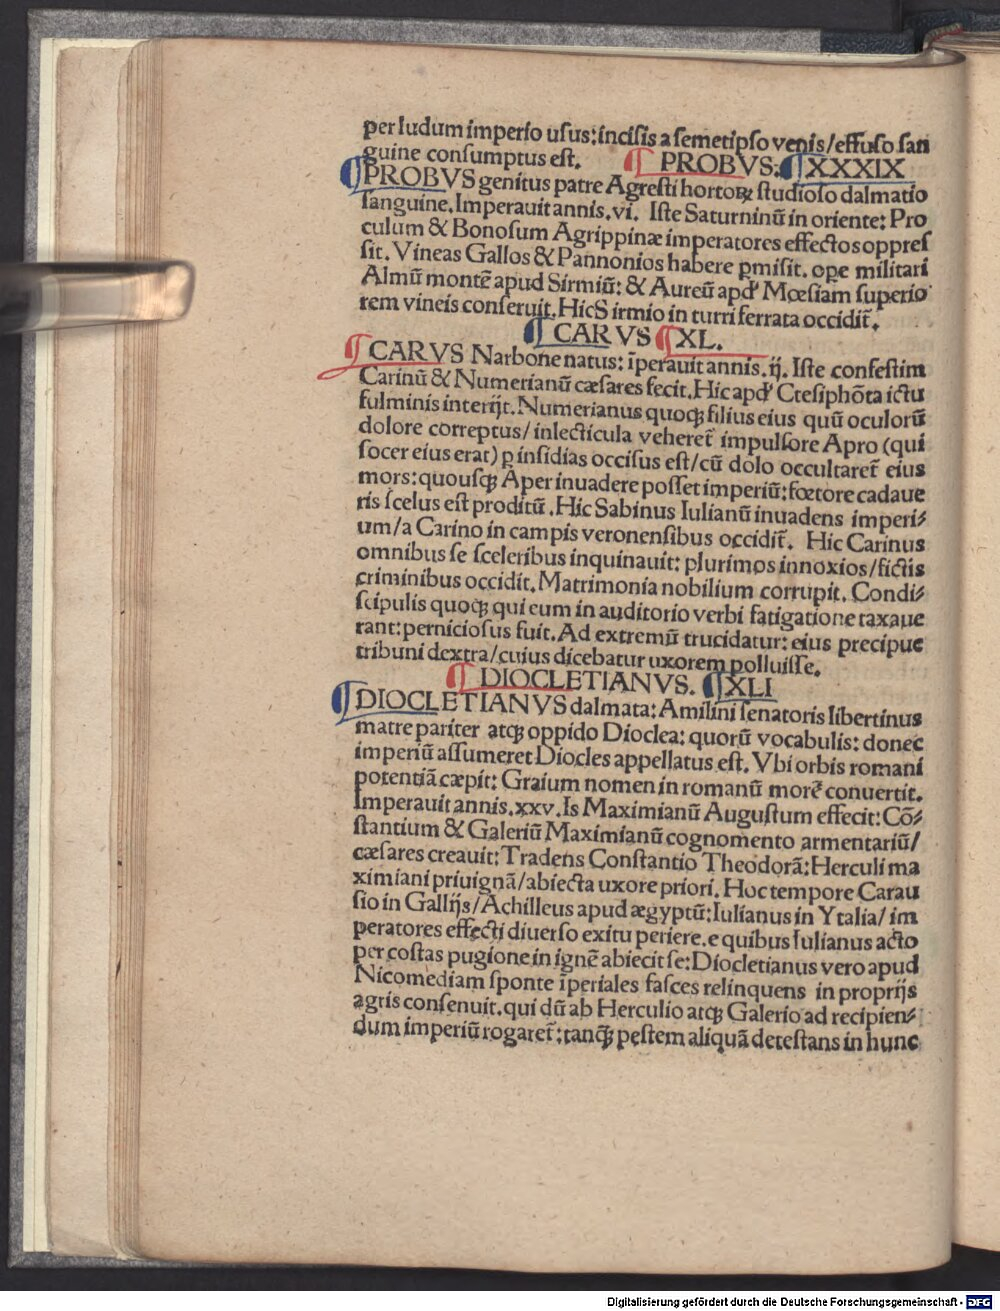 per ludum imperio uſus: inciſis a ſemetipſo venis/effuſo ſan
guine conſumptus eſt. ¶ PROBVS: ¶ XXXIX
¶ PROBVS genitus patre Agreſti hortoꝝ ſtudioſo dalmatio
ſanguine. Imperauit annis .vi. Iſte Saturninū in oriente: Pro
culum & Bonoſum Agrippinæ imperatores effectos oppreſ
ſit. Vineas Gallos & Pannonios habere ꝑmiſit. oꝑe militari
Almū montē apud Sirmiū: & Aureū apd' Mœſiam ſuperio
rem vineis conſeruit. HicS irmio in turri ferrata occidit̄.
¶ CARVS ¶ XL.
¶ CARVS Narbone natus: īperauit annis .ij. Iſte confeſtim
Carinū & Numerianū cæſares fecit. Hic apd' Cteſiphōta ictu
fulminis interijt. Numerianus quoqꝫ filius eius quū oculorū
dolore correptus/ inlecticula veheret̄ impulſore Apro (qui
ſocer eius erat) ꝑ inſidias occiſus eſt/ cū dolo occultaret̄ eius
mors: quouſqꝫ Aper inuadere poſſet imperiū: fœtore cadaue
ris ſcelus eſt proditū. Hic Sabinus Iulianū inuadens imperi⸗
um/a Carino in campis veronenſibus occidit̄. Hic Carinus
omnibus ſe ſceleribus inquinauit: plurimos innoxios/fictis
criminibus occidit. Matrimonia nobilium corrupit. Condi⸗
ſcipulis quoqꝫ qui eum in auditorio verbi fatigatione taxaue
rant: pernicioſus fuit. Ad extremū trucidatur: eius precipue
tribuni dextra/cuius dicebatur uxorem polluiſſe.
¶ DIOCLETIANVS. ¶ XLI
¶ DIOCLETIANVS dalmata: Amilini ſenatoris libertinus
matre pariter atqꝫ oppido Dioclea: quorū vocabulis: donec
imperiū aſſumeret Diocles appellatus eſt. Vbi orbis romani
potentiā cæpit: Graium nomen in romanū morē conuertit.
Imperauit annis .xxv. Is Maximianū Auguſtum effecit: Cō⸗
ſtantium & Galeriū Maximianū cognomento armentariū/
cæſares creauit: Tradens Conſtantio Theodorā: Herculi ma
ximiani priuignā/abiecta uxore priori. Hoc tempore Carau
ſio in Gallijs/Achilleus apud ægyptū: Iulianus in Ytalia/ im
peratores effecti diuerſo exitu periere. e quibus Iulianus acto
per coſtas pugione in ignē abiecit ſe: Diocletianus vero apud
Nicomediam ſponte īperiales faſces relinquens in proprijs
agris conſenuit. qui dū ab Herculio atqꝫ Galerio ad recipien⸗
dum imperiū rogaret̄: tanqꝫ̄ peſtem aliquā deteſtans in hunc
Digitalisierung gefördert durch die Deutsche Forschungsgemeinschaft - DFG